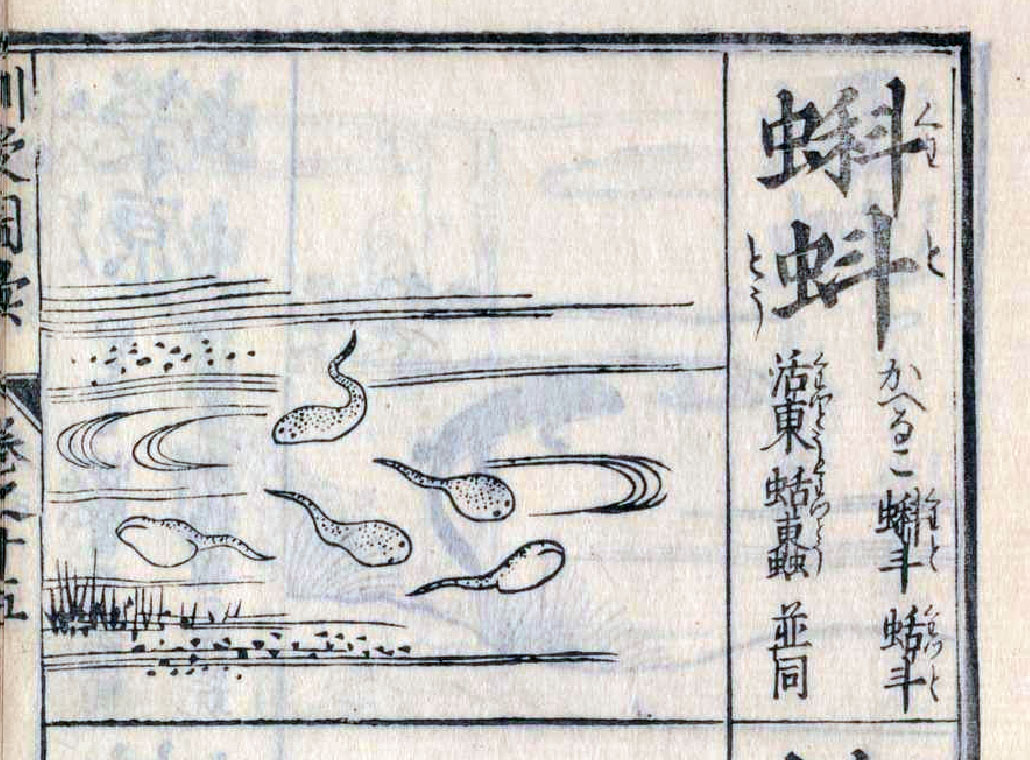 蝌蚪
くわ と
とう
かへるこ 蝌斗 蛞斗
くわと くわつと
活東 蛞 並同
くわつとう くわつとう
卷之十五